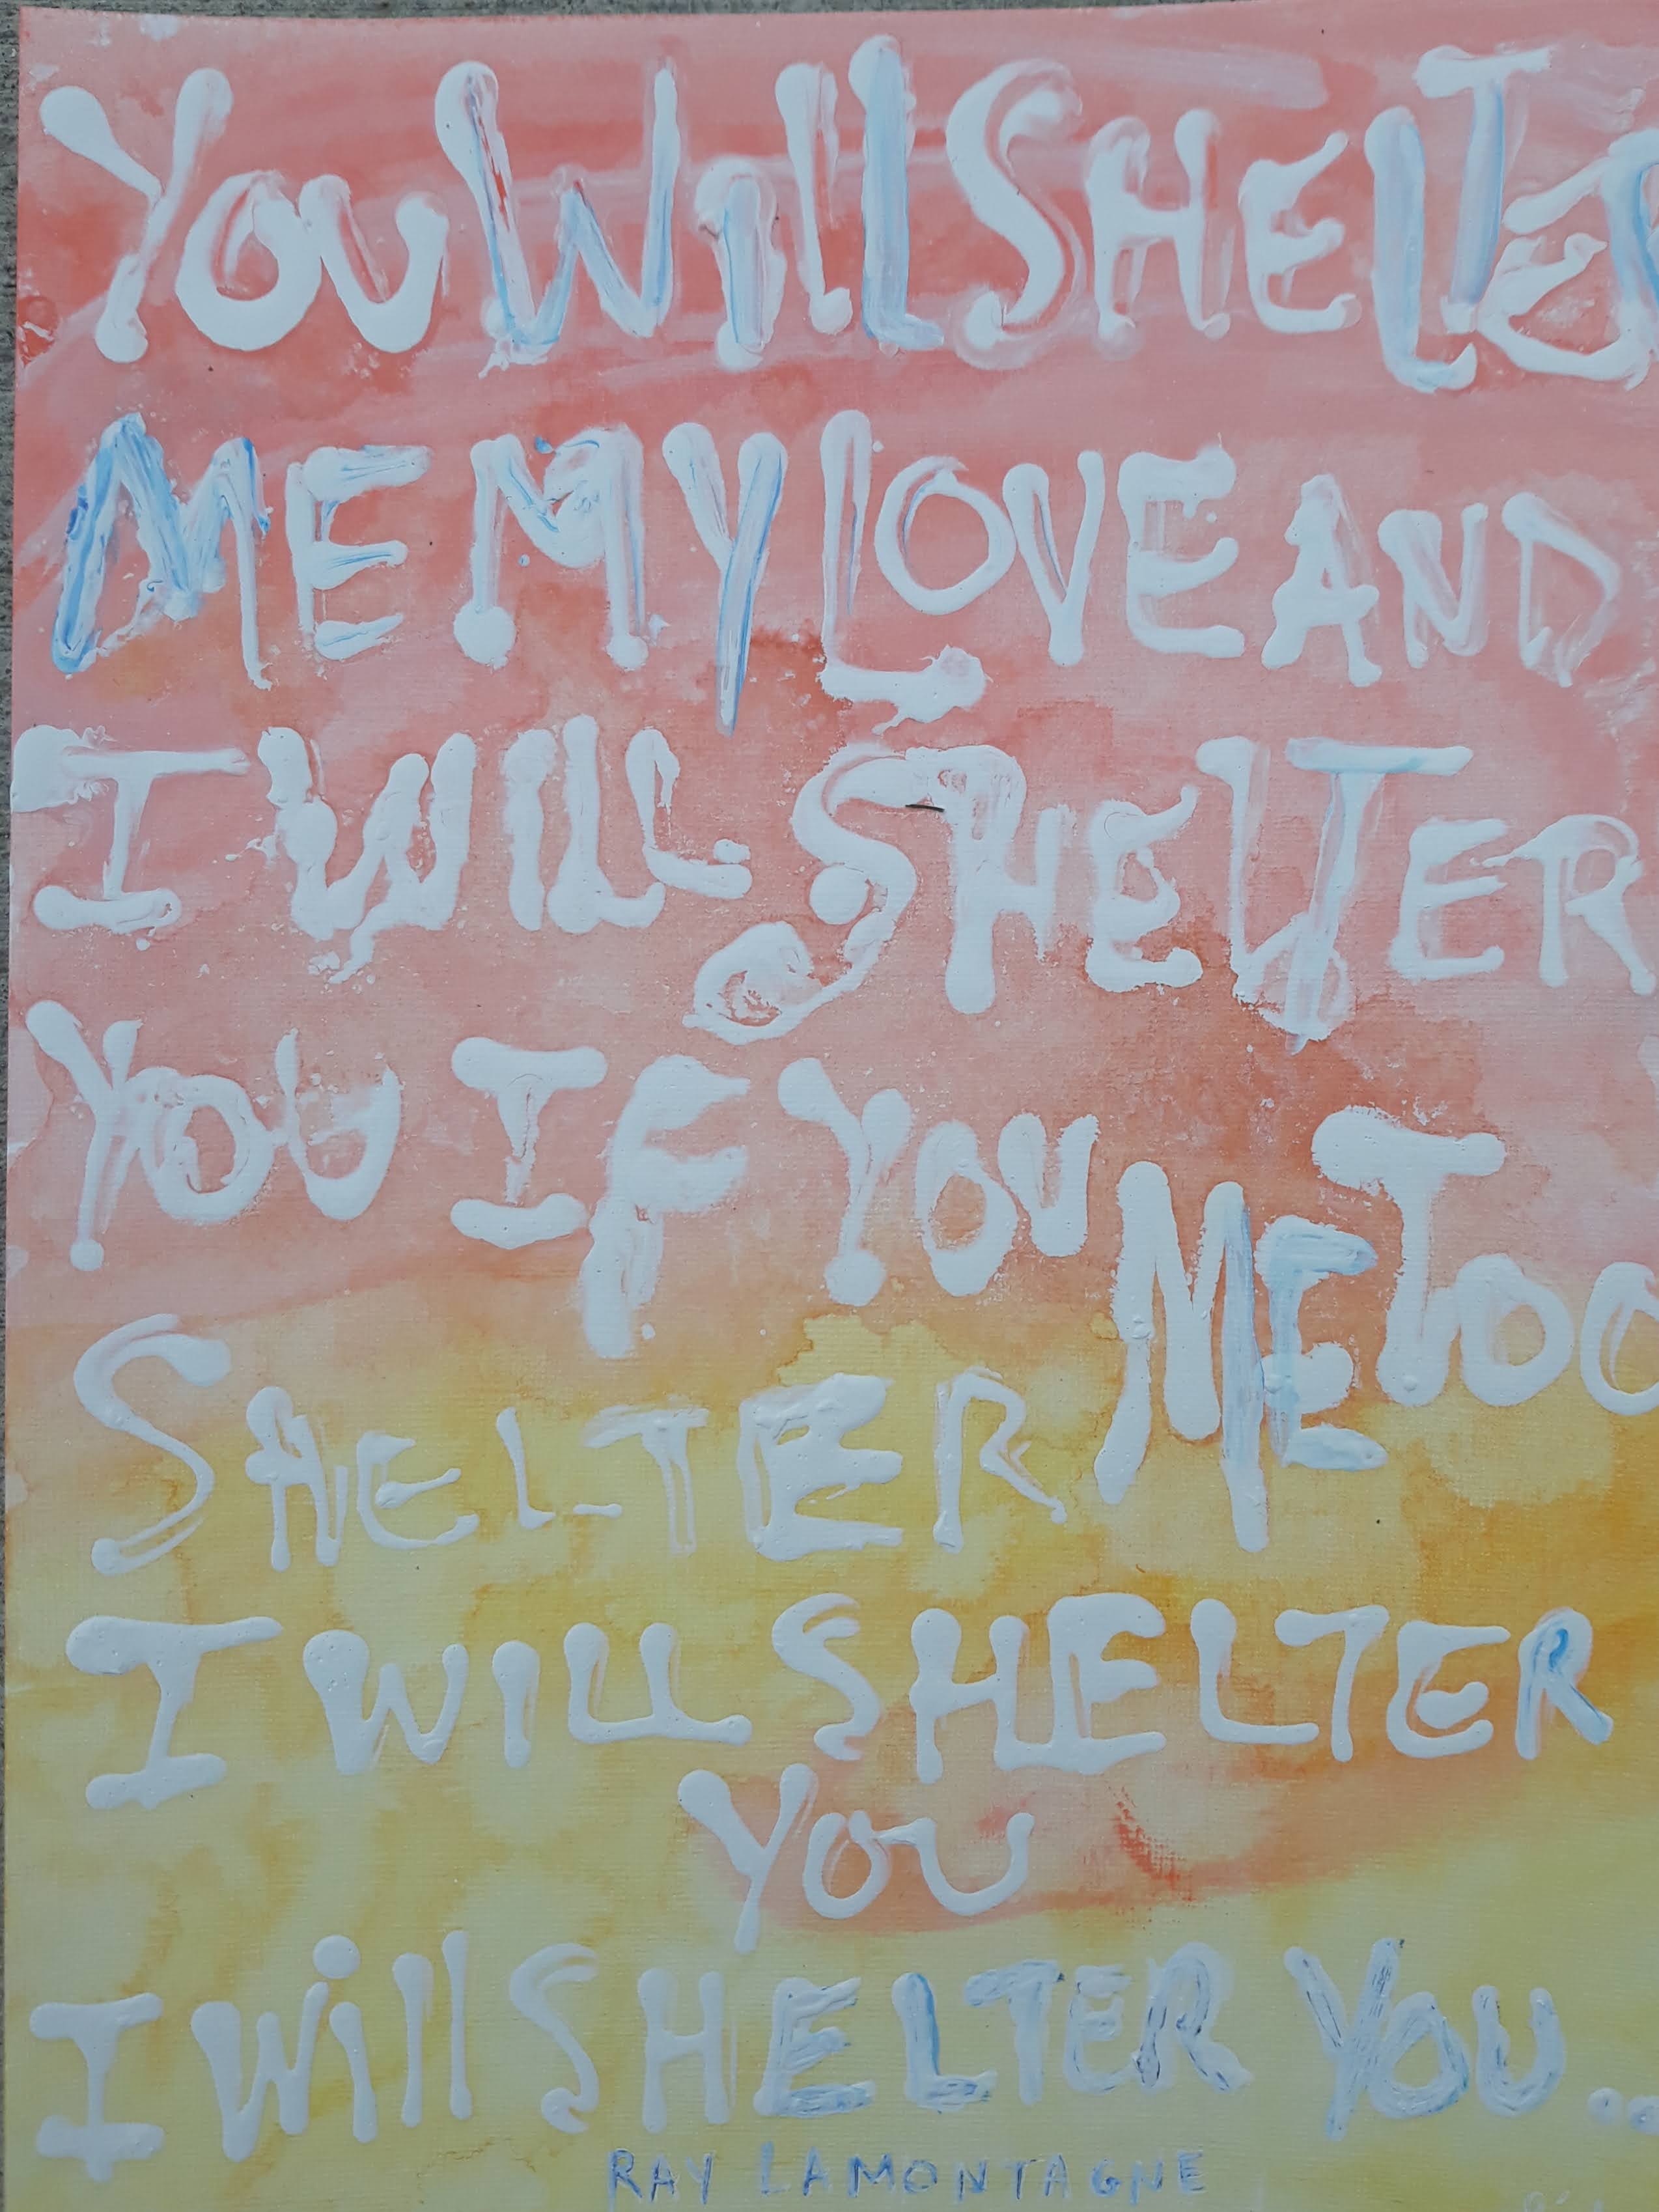 YOU WILL SHELTER
ME MY LOVE AND
I WILL SHELTER
YOU IF YOU ME TOO
SHELTER
I WILL SHELTER
YOU
I Will SHELTER YOU...
RAY LAMONTAGNE